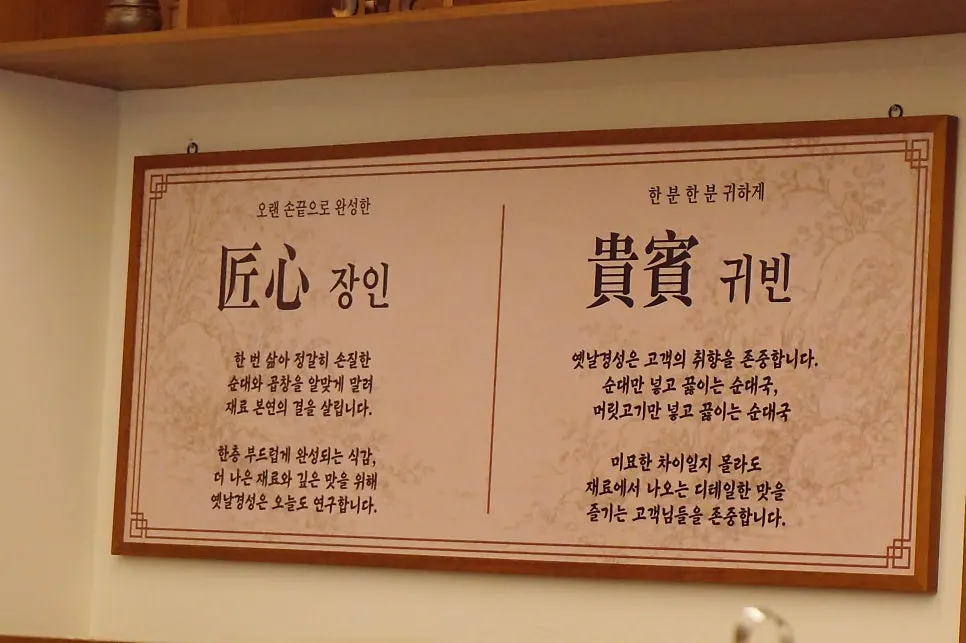 오랜 손끝으로 완성한
匠心 장인
한 번 삶아 정갈히 손질한
순대와 곱창을 알맞게 말려
재료 본연의 결을 살립니다.
한층 부드럽게 완성되는 식감,
더 나은 재료와 깊은 맛을 위해
옛날경성은 오늘도 연구합니다.
한 분 한 분 귀하게
貴賓 귀빈
옛날경성은 고객의 취향을 존중합니다.
순대만 넣고 끓이는 순대국,
머릿고기만 넣고 끓이는 순대국
미묘한 차이일지 몰라도
재료에서 나오는 디테일한 맛을
즐기는 고객님들을 존중합니다.